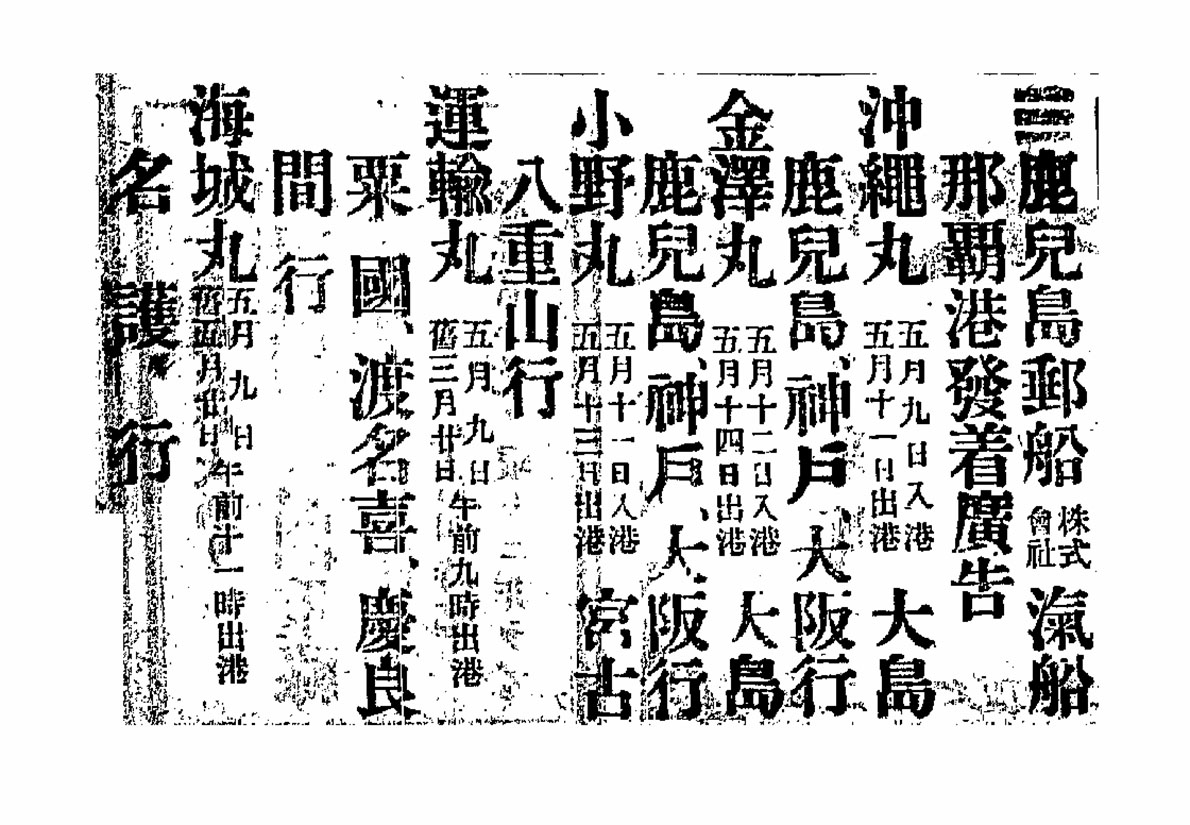 鹿兒島郵船株式會社汽船
那覇港發着廣告
沖繩丸 五月九日入港 五月十一日出港 大島
鹿兒島、神戶、大阪行
金澤丸 五月十二日入港 五月十四日出港 大島
鹿兒島、神戶、大阪行
小野丸 五月十一日入港 五月十三日出港 宮古
八重山行
運輸丸 五月九日 舊三月廿日 午前九時出港
粟國、渡名喜、慶良
間行
海城丸 五月九日 午前十一時出港
名護行